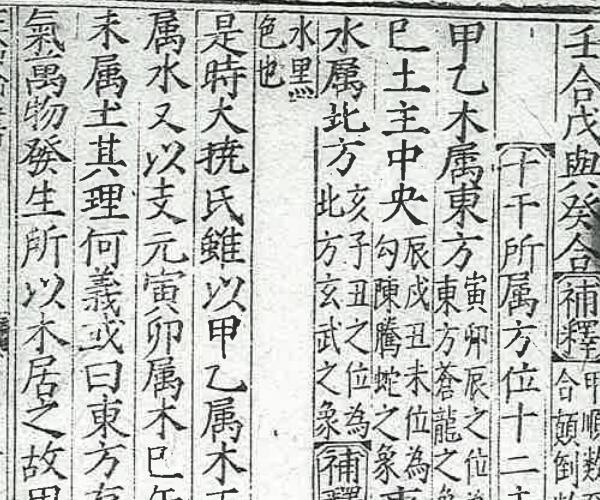 壬合戊與癸合補釋
甲順數
合顛倒
十干所属方位十二
甲乙木属東方
寅卯辰之位
東方蒼龍之象
巳土主中央
辰戌丑未位為
勾陳騰蛇之象
水属北方
亥子丑之位為
北方玄武之象
補釋
水黑
色也
是時大撓氏雖以甲乙属木
属水又以支元寅卯属木巳午
未属土其理何義或曰東方
氣萬物發生所以木居之故甲